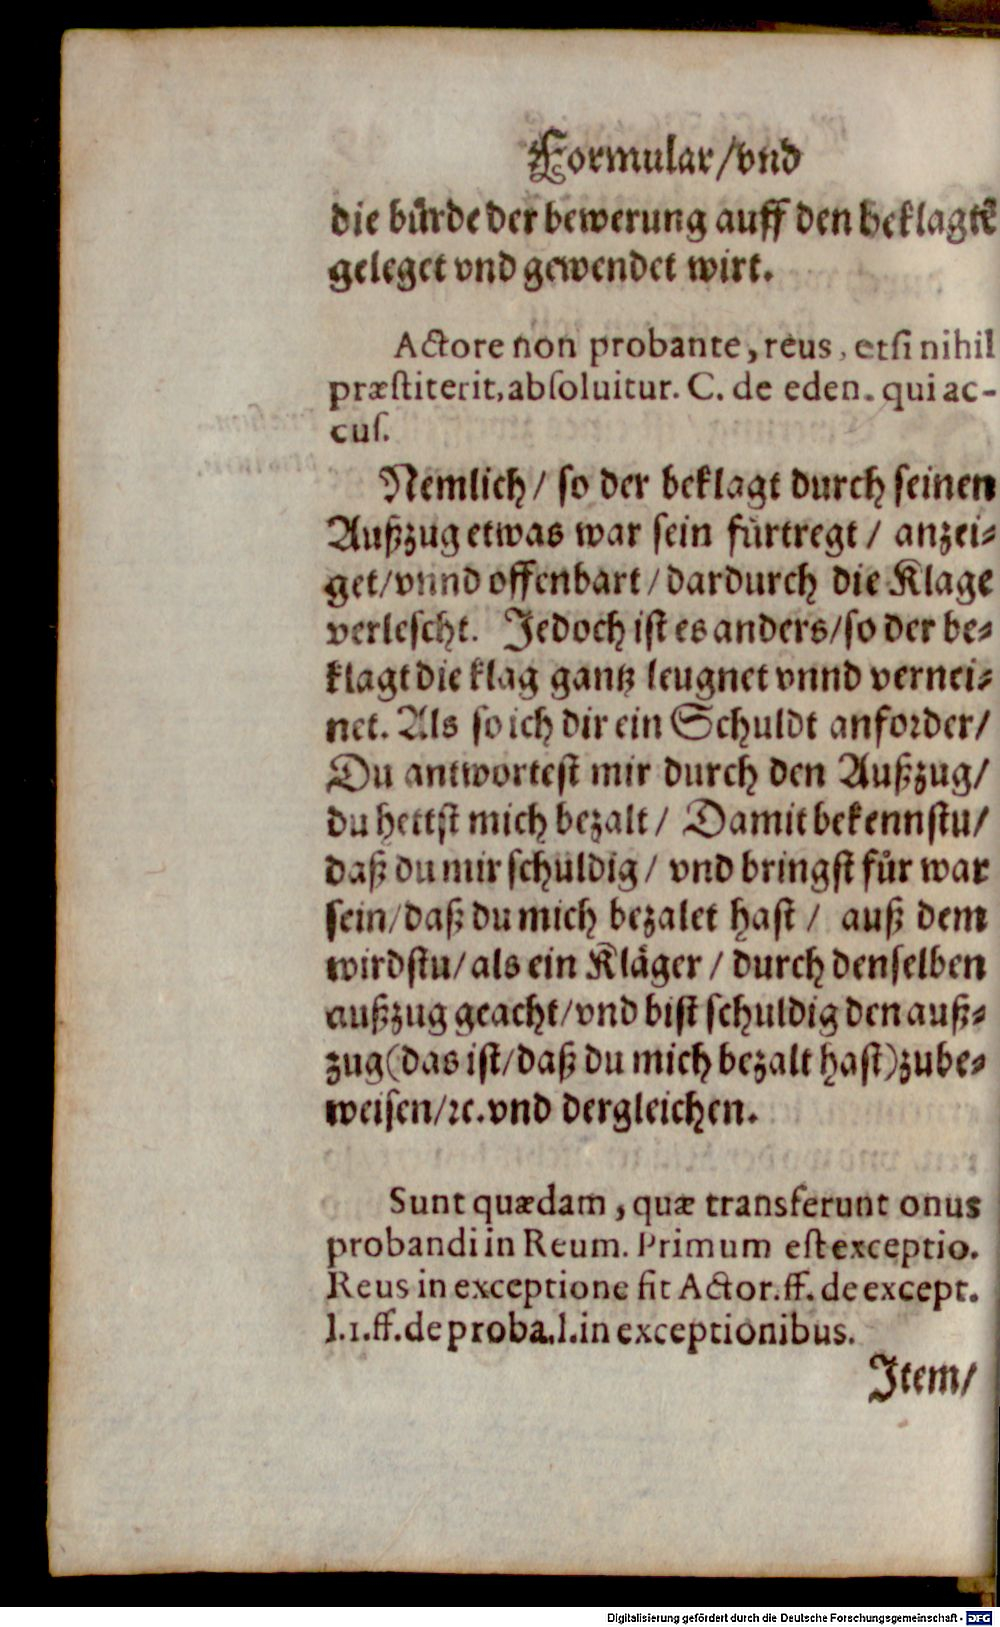 Formular/vnd
die bürde der bewerung auff den beklagtē
geleget vnd gewendet wirt.
Actore non probante, reus, etsi nihil
præstiterit, absoluitur. C. de eden. qui ac-
cus.
Nemlich/ so der beklagt durch seinen
Außzug etwas war sein fürtregt/ anzei-
get/vnnd offenbart/dardurch die Klage
verlescht. Jedoch ist es anders/so der be-
klagt die klag gantz leugnet vnnd vernei-
net. Als so ich dir ein Schuldt anforder/
Du antwortest mir durch den Außzug/
du hettst mich bezalt/ Damit bekennstu/
daß du mir schuldig/ vnd bringst für war
sein/daß du mich bezalet hast/ auß dem
wirdstu/als ein Kläger/durch denselben
außzug geacht/vnd bist schuldig den auß-
zug(das ist/daß du mich bezalt hast)zube-
weisen/ꝛc.vnd dergleichen.
Sunt quædam, quæ transferunt onus
probandi in Reum. Primum est exceptio.
Reus in exceptione fit Actor.ff. de except.
l.1.ff.de proba.l.in exceptionibus.
Item/
Digitalisierung gefördert durch die Deutsche Forschungsgemeinschaft - DFG